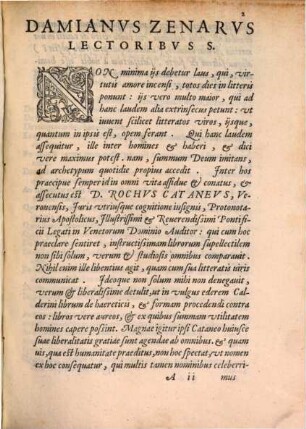 2
DAMIANVS ZENARVS
LECTORIBVS S.
NON minima ijs debetur laus, qui, vir-
tutis amore incensi, totos dies in litteris
ponunt: ijs vero multo maior, qui ad
hanc laudem alia extrinsecus petunt: vt
iuuent scilicet litteratos viros, ijsque,
quantum in ipsis est, opem ferant. Qui hanc laudem
assequitur, ille inter homines & haberi, & dici
vere maximus potest. nam, summum Deum imitans,
ad archetypum quotidie propius accedit. Inter hos
praecipue semper id in omni vita assidue & conatus, &
assecutus est D. ROCHVS CATANEVS, Ve-
ronensis, Juris vtriusque cognitione insignis, Protonota-
rius Apostolicus, Illustrissimi & Reuerendissimi Pontifi-
cij Legati in Venetorum Dominio Auditor: qui cum hoc
praeclare sentiret, instructissimam librorum supellectilem
non sibi solum, verum & studiosis omnibus comparauit.
Nihil enim ille libentius agit, quam cum sua litteratis viris
communicat. Ideoque non solum mihi non denegauit,
verum & liberalissime detulit, vt in vulgus ederem Cal-
derini librum de haereticis, & formam procedendi contra
eos: libros vere aureos, & ex quibus summam vtilitatem
homines capere possint. Magnae igitur ipsi Cataneo huiusce
suae liberalitatis gratiae sunt agendae ab omnibus. & quam
uis, qua est humanitate praeditus, non hoc spectat, vt nomen
ex hoc consequatur, qui multis tamen nominibus celeberri-
A ii mus